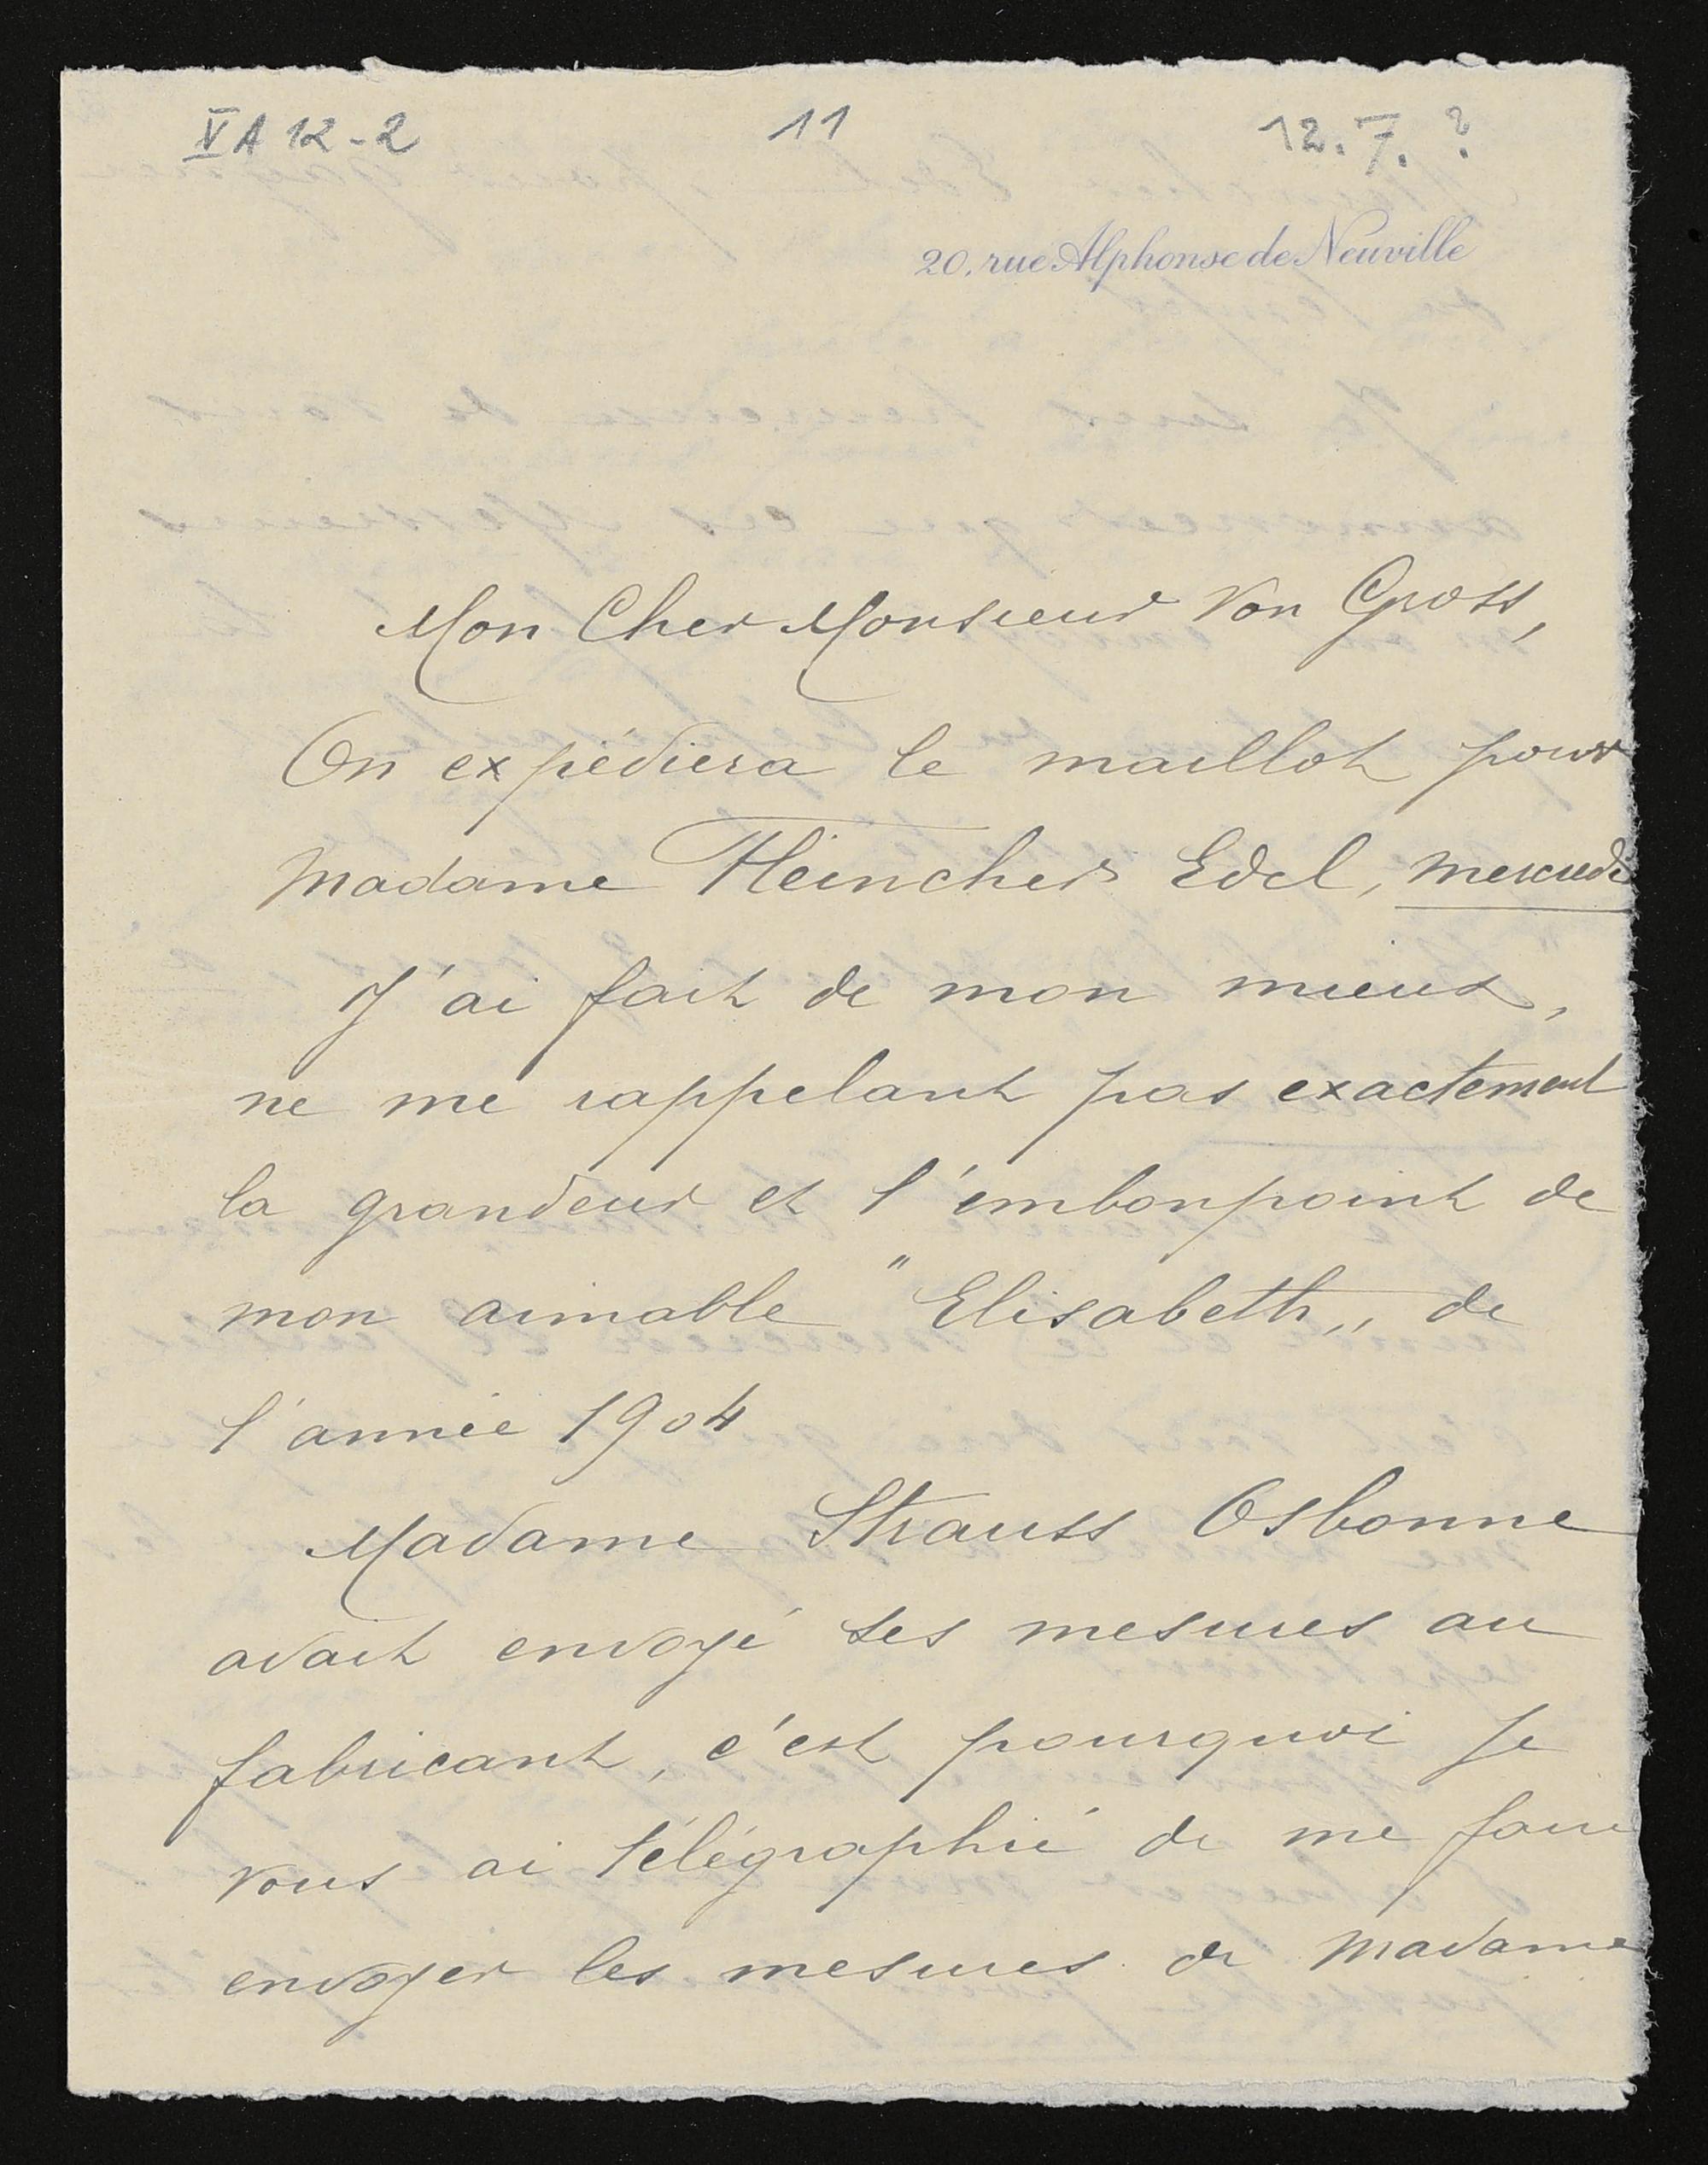 V A 12-2
11
12.7.?
20, rue Alphonse de Neuville
Mon Cher Monsieur Von Gross,
On expédiera le maillot pour
Madame Fleincher Edel, mercredi
J'ai fait de mon mieux,
ne me rappelant pas exactement
la grandeur et l'embonpoint de
mon aimable "Elisabeth,, de
l'année 1904
Madame Strauss Osbonne
avait envoyé ses mesures au
fabricant, c'est pourquoi je
vous ai télégraphié de me faire
envoyer les mesures de Madame